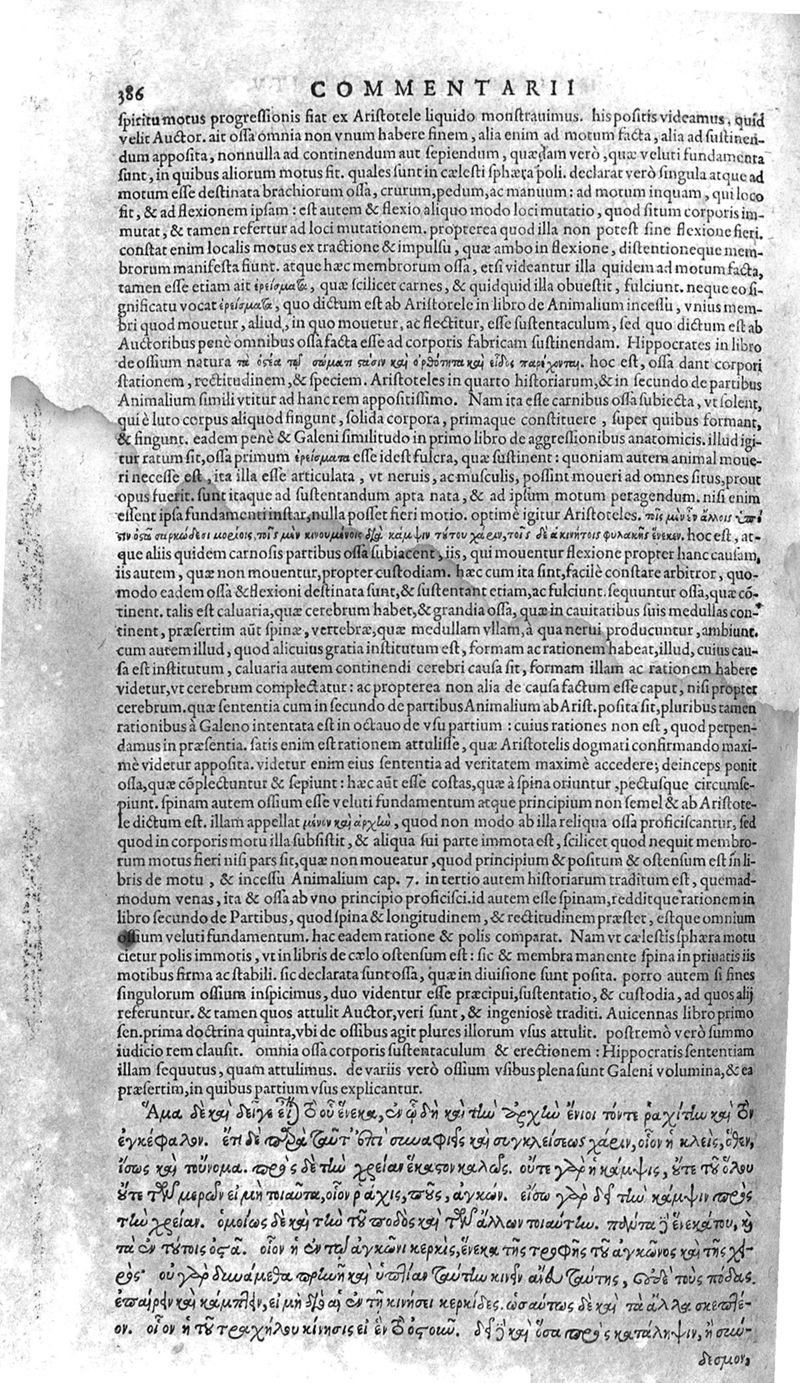 386 COMMENTARII
spiritu motus progressionis fiat ex Aristotele liquido monstrauimus. his positis videamus, quid
velit Auctor. ait ossa omnia non vnum habere finem, alia enim ad motum facta, alia ad sustinen-
dum apposita, nonnulla ad continendum aut sepiendum, quædam verò, quæ veluti fundamenta
sunt, in quibus aliorum motus fit. quales sunt in cælesti sphæra poli. declarat verò singula atque ad
motum esse destinata brachiorum ossa, crurum, pedum, ac manuum: ad motum inquam, qui loco
fit, & ad flexionem ipsam: est autem & flexio aliquo modo loci mutatio, quod situm corporis im-
mutat, & tamen refertur ad loci mutationem. propterea quod illa non potest sine flexione fieri.
constat enim localis motus ex tractione & impulsu, quæ ambo in flexione, distentioneque mem-
brorum manifesta fiunt. atque hæc membrorum ossa, etsi videantur illa quidem ad motum facta,
tamen esse etiam ait ἐρείσματα, quæ scilicet carnes, & quidquid illa obuestit, fulciunt. neque eo si-
gnificatu vocat ἐρείσματα, quo dictum est ab Aristotele in libro de Animalium incessu, vnius mem-
bri quod mouetur, aliud, in quo mouetur, ac flectitur, esse sustentaculum, sed quo dictum est ab
Auctoribus penè omnibus ossa facta esse ad corporis fabricam sustinendam. Hippocrates in libro
de ossium natura τὰ ὀστέα τῷ σώματι στάσιν καὶ ὀρθότητα καὶ εἶδος παρέχονται. hoc est, ossa dant corpori
stationem, rectitudinem, & speciem. Aristoteles in quarto historiarum, & in secundo de partibus
Animalium simili vtitur ad hanc rem appositissimo. Nam ita esse carnibus ossa subiecta, vt solent,
qui è luto corpus aliquod fingunt, solida corpora, primaque constituere, super quibus formant,
& fingunt. eadem penè & Galeni similitudo in primo libro de aggressionibus anatomicis. illud igi-
tur ratum sit, ossa primum ἐρείσματα esse idest fulcra, quæ sustinent: quoniam autem animal moue-
ri necesse est, ita illa esse articulata, vt neruis, ac musculis, possint moueri ad omnes situs, prout
opus fuerit. sunt itaque ad sustentandum apta nata, & ad ipsum motum peragendum. nisi enim
essent ipsa fundamenti instar, nulla posset fieri motio. optimè igitur Aristoteles. τοῖς μὲν ἓν ἄλλοις ὕπε
σιν ὀστᾶ σαρκώδεσι μορίοις, τοῖς μὲν κινουμένοις διὰ κάμψιν τούτου χάριν, τοῖς δὲ ἀκινήτοις φυλακῆς ἕνεκεν. hoc est, at-
que aliis quidem carnosis partibus ossa subiacent, iis, qui mouentur flexione propter hanc causam,
iis autem, quæ non mouentur, propter custodiam. hæc cum ita sint, facilè constare arbitror, quo-
modo eadem ossa & flexioni destinata sunt, & sustentant etiam, ac fulciunt. sequuntur ossa, quæ cō-
tinent. talis est caluaria, quæ cerebrum habet, & grandia ossa, quæ in cauitatibus suis medullas con-
tinent, præsertim aūt spinæ, vertebræ, quæ medullam vllam, à qua nerui producuntur, ambiunt.
cum autem illud, quod alicuius gratia institutum est, formam ac rationem habeat, illud, cuius cau-
sa est institutum, caluaria autem continendi cerebri causa sit, formam illam ac rationem habere
videtur, vt cerebrum complectatur: ac propterea non alia de causa factum esse caput, nisi propter
cerebrum. quæ sententia cum in secundo de partibus Animalium ab Arist. posita sit, pluribus tamen
rationibus à Galeno intentata est in octauo de vsu partium: cuius rationes non est, quod perpen-
damus in præsentia. satis enim est rationem attulisse, quæ Aristotelis dogmati confirmando maxi-
mè videtur apposita. videtur enim eius sententia ad veritatem maximè accedere; deinceps ponit
ossa, quæ cōplectuntur & sepiunt: hæc aūt esse costas, quæ à spina oriuntur, pectusque circumse-
piunt. spinam autem ossium esse veluti fundamentum atque principium non semel & ab Aristote-
le dictum est. illam appellat μένειν καὶ ἀρχὴν, quod non modo ab illa reliqua ossa proficiscantur, sed
quod in corporis motu illa subsistit, & aliqua sui parte immota est, scilicet quod nequit membro-
rum motus fieri nisi pars sit, quæ non moueatur, quod principium & positum & ostensum est in li-
bris de motu, & incessu Animalium cap. 7. in tertio autem historiarum traditum est, quemad-
modum venas, ita & ossa ab vno principio proficisci. id autem esse spinam, redditque rationem in
libro secundo de Partibus, quod spina & longitudinem, & rectitudinem præstet, estque omnium
ossium veluti fundamentum. hac eadem ratione & polis comparat. Nam vt cælestis sphæra motu
cietur polis immotis, vt in libris de cælo ostensum est: sic & membra manente spina in priuatis iis
motibus firma ac stabili. sic declarata sunt ossa, quæ in diuisione sunt posita. porro autem si fines
singulorum ossium inspicimus, duo videntur esse præcipui, sustentatio, & custodia, ad quos alij
referuntur. & tamen quos attulit Auctor, veri sunt, & ingeniosè traditi. Auicennas libro primo
sen. prima doctrina quinta, vbi de ossibus agit plures illorum vsus attulit. postremò verò summo
iudicio rem clausit. omnia ossa corporis sustentaculum & erectionem: Hippocratis sententiam
illam sequutus, quam attulimus. de variis verò ossium vsibus plena sunt Galeni volumina, & ea
præsertim, in quibus partium vsus explicantur.
Ἅμα δὲ καὶ δεῖγε εἰπεῖν τὸ οὗ ἕνεκα, ἐν ᾧ δὴ καὶ τὴν ἀρχὴν ἔνιοι τόν τε ῥαχίτην καὶ τὸν
ἐγκέφαλον. ἔτι δὲ παρὰ ταῦτ' ἐπὶ συναφῆς καὶ συγκλείσεως χάριν, οἷον ἡ κλεὶς, ὅθεν,
ἴσως καὶ τοὔνομα. πρὸς δὲ τὴν χρείαν ἕκαστον καλῶς. οὔτε γὰρ ἡ κάμψις, οὔτε τοῦ ὅλου
οὔτε τῶν μερῶν εἰ μὴ τοιαῦτα, οἷον ράχις, ποῦς, ἀγκών. εἴσω γὰρ δεῖ τὴν κάμψιν πρὸς
τὴν χρείαν. ὁμοίως δὲ καὶ τὴν τοῦ ποδὸς καὶ τῶν ἄλλων τοιαύτην. πάντα γὰρ ἕνεκά του, καὶ
τὰ ἐν τούτοις ὀστᾶ. οἷον ἡ ἐν τῷ ἀγκῶνι κερκίς, ἕνεκα τῆς τροφῆς τοῦ ἀγκῶνος καὶ τῆς χει
ρός· οὐ γὰρ δυνάμεθα πρινῆ καὶ ὑπτίαν ταύτην κινεῖν ἄνευ ταύτης, οὐδὲ τοὺς πόδας.
ἐπαίρειν καὶ κάμπτειν, εἰ μὴ διὰ αἱ ἐν τῇ κινήσει κερκίδες. ὡσαύτως δὲ καὶ τὰ ἄλλα σκεπτέ-
ον. οἷον ἡ τοῦ τραχήλου κίνησις εἰ ἓν τὸ ὀστοῦν. δεῖ γὰρ καὶ ὅσα πρὸς κατάληψιν, ἢ σύν-
δεσμον,